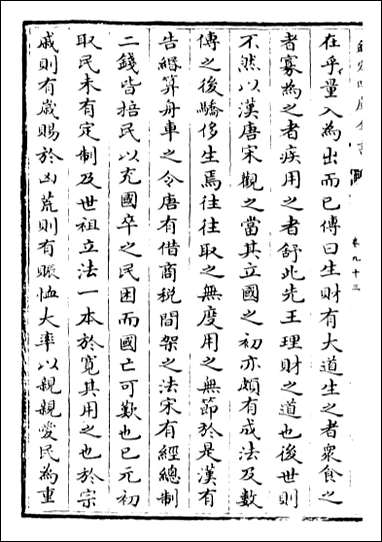 欽定四庫全書
卷九十三
在乎量入為出而已傳曰生財有大道生之者衆食之
者寡為之者疾用之者舒此先王理財之道也後世則
不然以漢唐宋觀之當其立國之初亦頗有成法及數
傳之後驕侈生焉往往取之無度用之無節於是漢有
告緡算舟車之令唐有借商稅間架之法宋有經總制
二錢皆掊民以充國卒之民困而國亡可歎也已元初
取民未有定制及世祖立法一本於寛其用之也於宗
戚則有嵗賜於凶荒則有賑恤大率以親親愛民為重